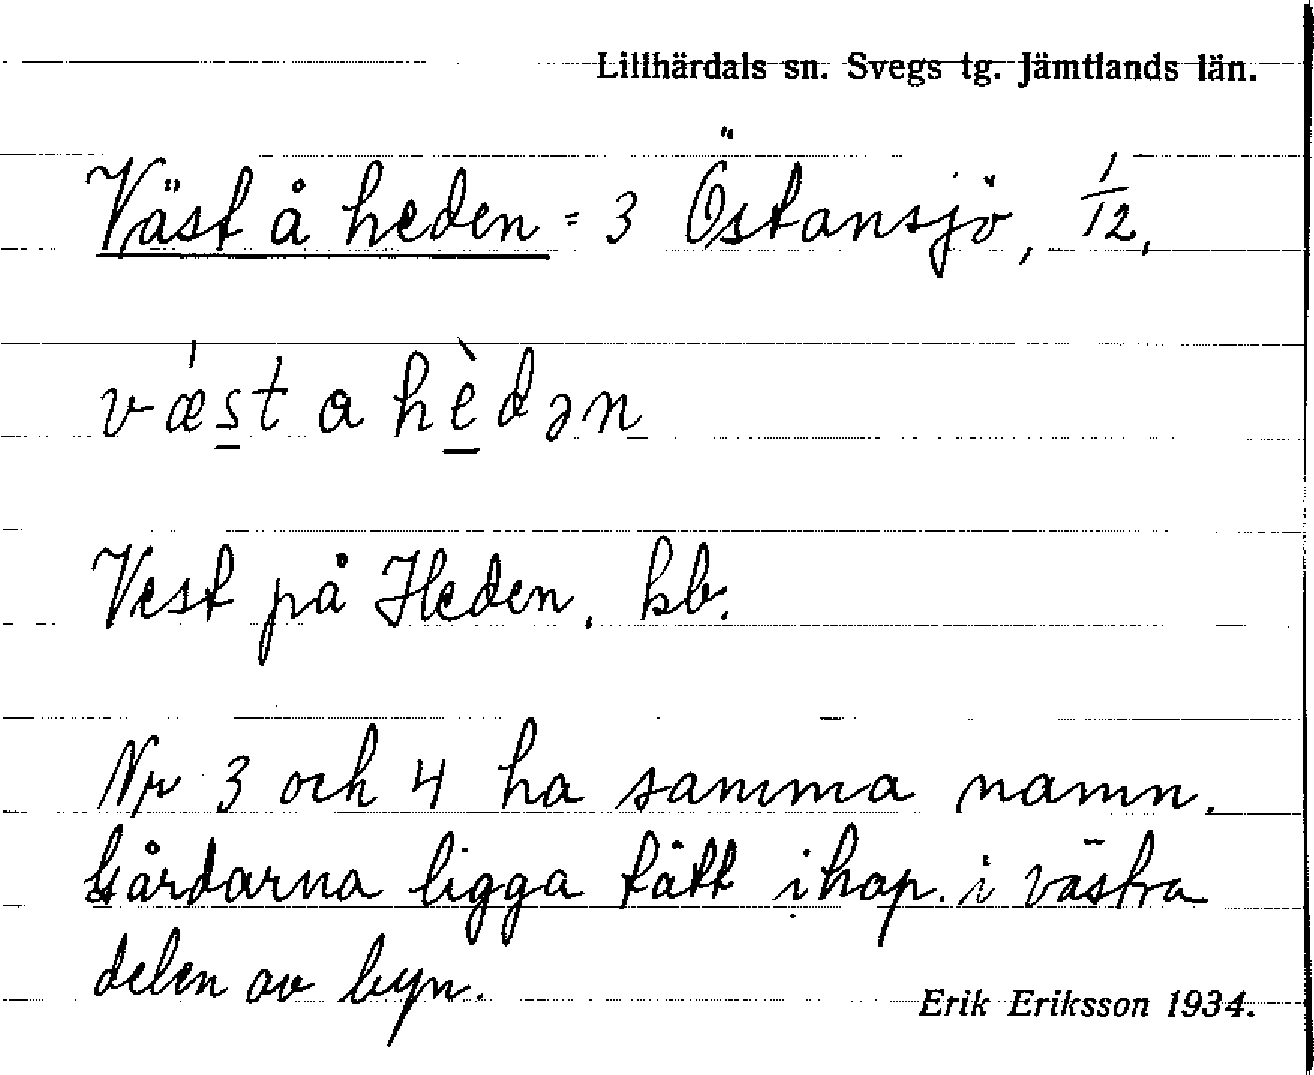 Lillhärdals sn. Svegs tg. Jämtlands län.
Väst å heden = 3 Östansjö, 1/12.
vǽs̲t a hè̲dən
Vest på Heden, kb.
Nr 3 och 4 ha samma namn.
Gårdarna ligga tätt ihop i västra
delen av byn.
Erik Eriksson 1934.